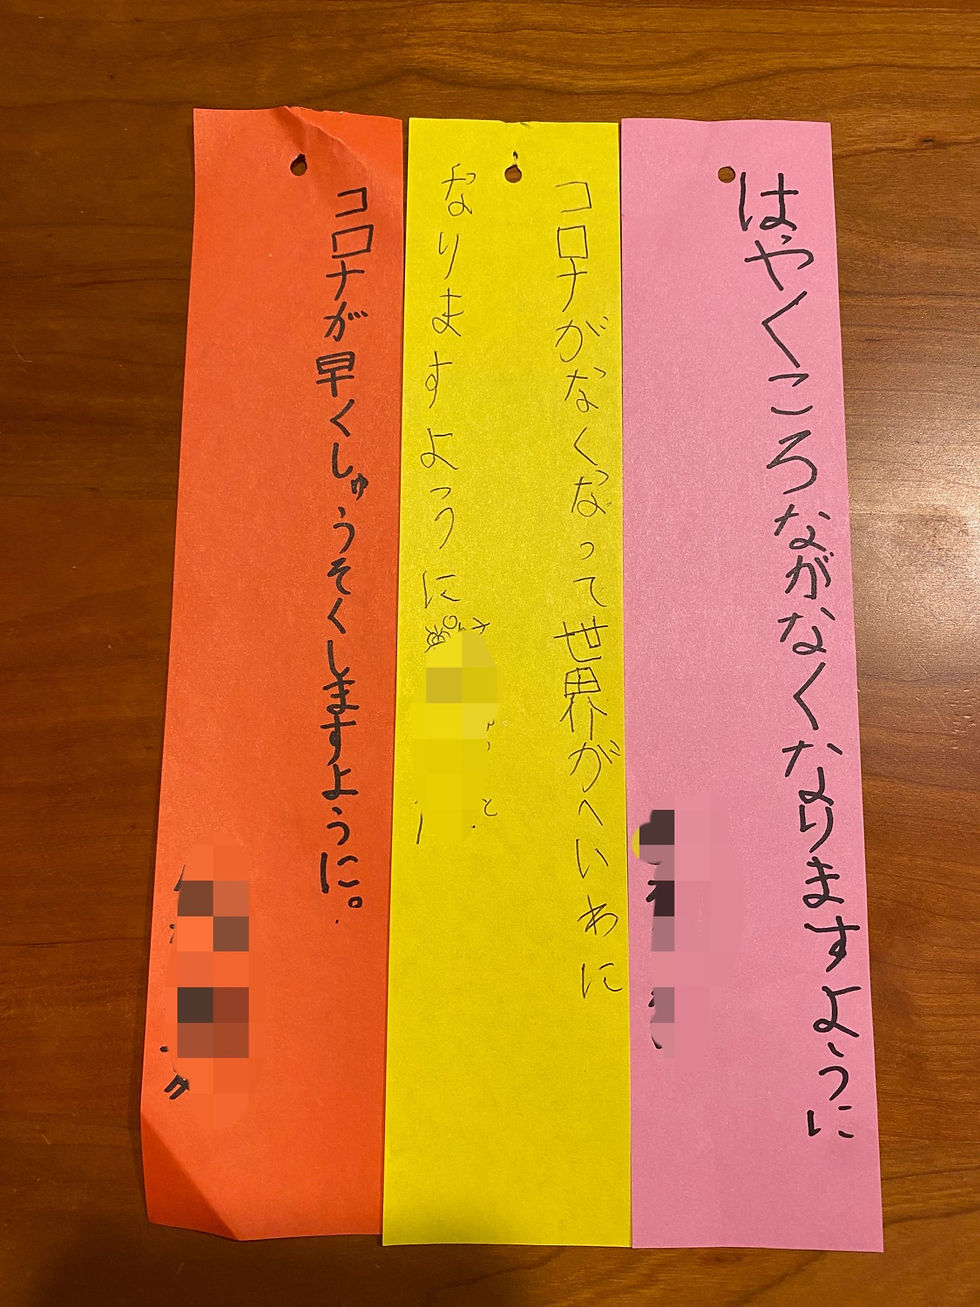 はやくころながなくなりますように
コロナがなくなって世界がへいわに
なりますように。
コロナが早くしゅうそくしますように。